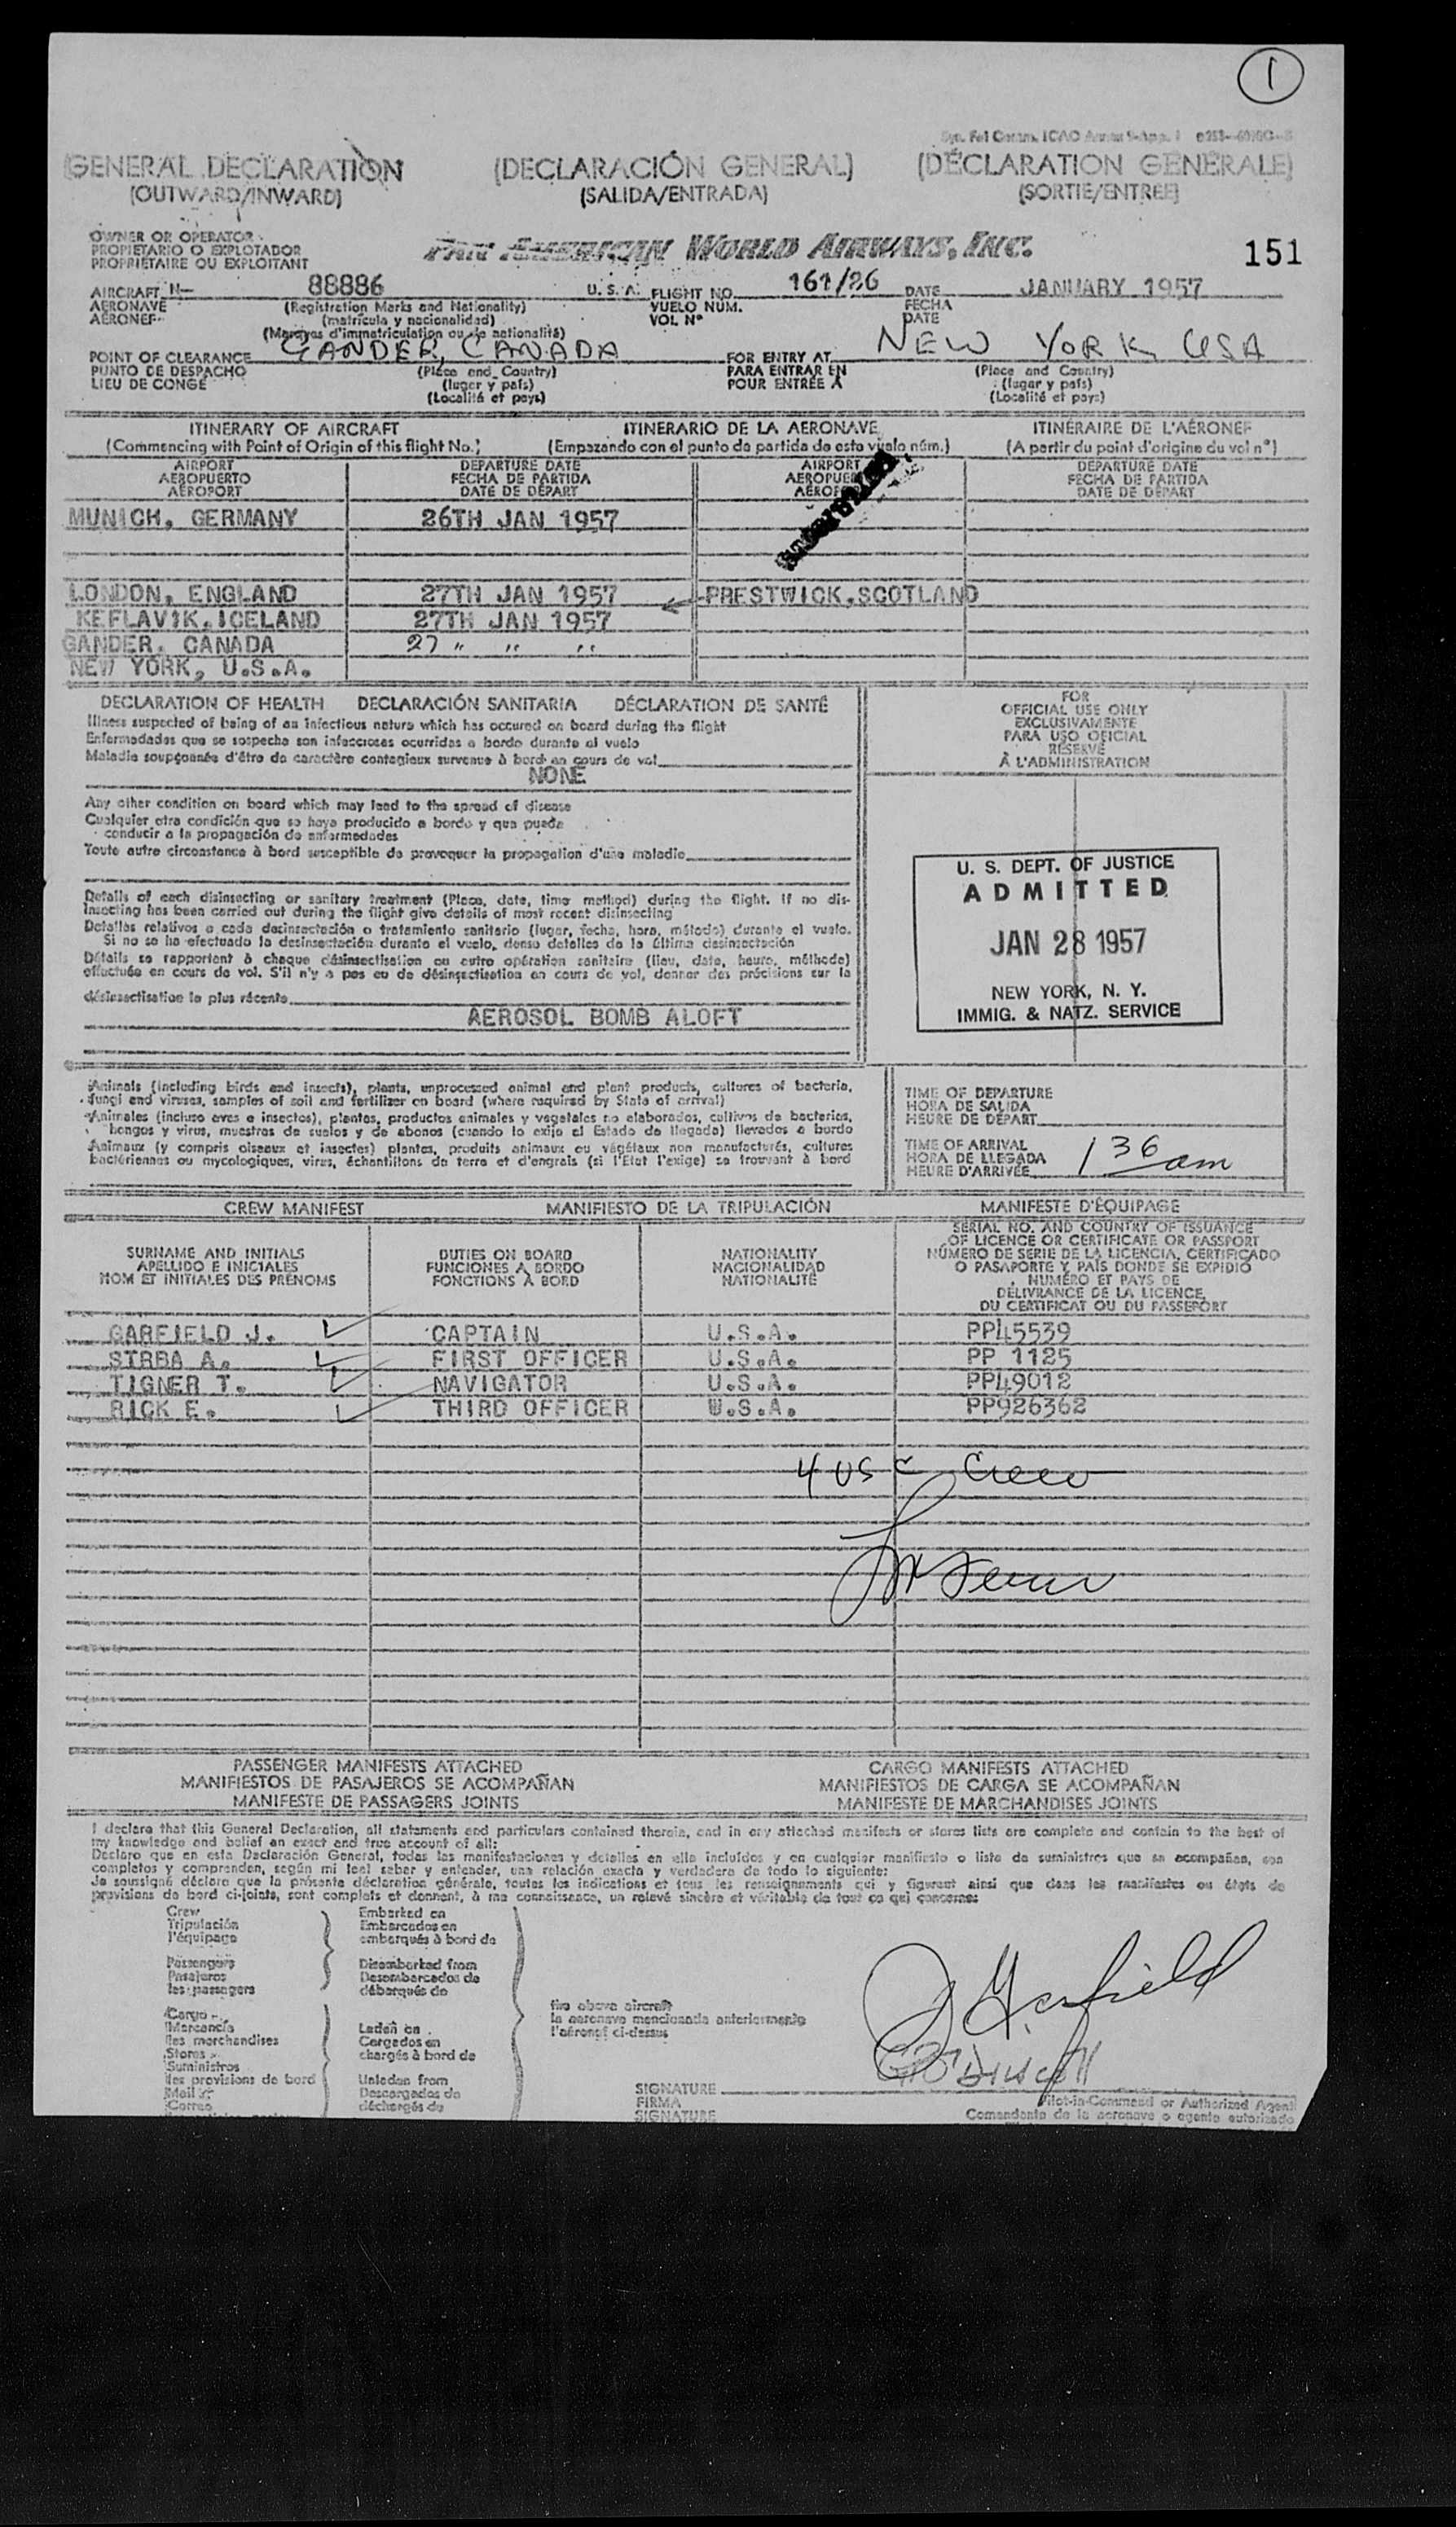 1
GENERAL DECLARATION
(OUTWARD/INWARD)
(DECLARACIÓN GENERAL)
(SALIDA/ENTRADA)
(DÉCLARATION GÉNÉRALE)
(SORTIE/ENTREE)
OWNER OR OPERATOR
PROPIETARIO O EXPLOTADOR
PROPRIÉTAIRE OU EXPLOITANT
PAN AMERICAN WORLD AIRWAYS, INC.
151
AIRCRAFT N— 88886 U.S.A. FLIGHT NO. 161/26 DATE JANUARY 1957
AERONAVE (Registration Marks and Nationality) VUELO NÚM. FECHA
AÉRONEF (matrícula y nacionalidad) VOL Nº DATE
(Marques d'immatriculation ou de nationalité)
POINT OF CLEARANCE GANDER, CANADA FOR ENTRY AT NEW YORK USA
PUNTO DE DESPACHO (Place and Country) PARA ENTRAR EN (Place and Country)
LIEU DE CONGÉ (lugar y país) POUR ENTRÉE À (lugar y país)
(Localité et pays) (Localité et pays)
ITINERARY OF AIRCRAFT ITINERARIO DE LA AERONAVE ITINÉRAIRE DE L'AÉRONEF
(Commencing with Point of Origin of this flight No.) (Empazando con el punto de partida de este vuelo núm.) (A partir du point d'origine du vol nº)
AIRPORT DEPARTURE DATE AIRPORT DEPARTURE DATE
AEROPUERTO FECHA DE PARTIDA FECHA DE PARTIDA
AÉROPORT DATE DE DÉPART DATE DE DÉPART
MUNICH, GERMANY 26TH JAN 1957
LONDON, ENGLAND 27TH JAN 1957 PRESTWICK,SCOTLAND
KEFLAVIK,ICELAND 27TH JAN 1957
GANDER, CANADA 27 " " "
NEW YORK, U.S.A.
DECLARATION OF HEALTH DECLARACIÓN SANITARIA DÉCLARATION DE SANTÉ
Illness suspected of being of an infectious nature which has occured on board during the flight
Enfermedades que se sospecha son infecciosas ocurridas a bordo durante el vuelo
Maladie soupçonnée d'être de caractère contagieux survenue à bord en cours de vol
NONE
Any other condition on board which may lead to the spread of disease
Cualquier otra condición que se haya producido a bordo y que pueda
conducir a la propagación de enfermedades
Toute autre circonstance à bord susceptible de provoquer la propagation d'une maladie
Details of each disinsecting or sanitary treatment (Place, date, time method) during the flight. If no dis-
insecting has been carried out during the flight give details of most recent disinsecting
Detalles relativos a cada desinsectación o tratamiento sanitario (lugar, fecha, hora, método) durante el vuelo.
Si no se ha efectuado la desinsectación durante el vuelo, dense detalles de la última desinsectación
Détails se rapportant à chaque désinsectisation ou autre opération sanitaire (lieu, date, heure, méthode)
effectuée en cours de vol. S'il n'y a pas eu de désinsectisation en cours de vol, donner des précisions sur la
désinsectisation la plus récente
AEROSOL BOMB ALOFT
FOR
OFFICIAL USE ONLY
EXCLUSIVAMENTE
PARA USO OFICIAL
RÉSERVÉ
À L'ADMINISTRATION
U. S. DEPT. OF JUSTICE
ADMITTED
JAN 28 1957
NEW YORK, N. Y.
IMMIG. & NATZ. SERVICE
Animals (including birds and insects), plants, unprocessed animal and plant products, cultures of bacteria,
fungi and viruses, samples of soil and fertilizer on board (where required by State of arrival)
Animales (incluso aves e insectos), plantas, productos animales y vegetales no elaborados, cultivos de bacterias,
hongos y virus, muestras de suelos y de abonos (cuando lo exija el Estado de llegada) llevados a bordo
Animaux (y compris oiseaux et insectes) plantes, produits animaux ou végétaux non manufacturés, cultures
bactériennes ou mycologiques, virus, échantillons de terre et d'engrais (si l'Etat l'exige) se trouvant à bord
TIME OF DEPARTURE
HORA DE SALIDA
HEURE DE DÉPART
TIME OF ARRIVAL
HORA DE LLEGADA
HEURE D'ARRIVÉE 1 36 am
CREW MANIFEST MANIFIESTO DE LA TRIPULACIÓN MANIFESTE D'ÉQUIPAGE
SURNAME AND INITIALS
APELLIDO E INICIALES
NOM ET INITIALES DES PRÉNOMS
DUTIES ON BOARD
FUNCIONES A BORDO
FONCTIONS À BORD
NATIONALITY
NACIONALIDAD
NATIONALITÉ
SERIAL NO. AND COUNTRY OF ISSUANCE
OF LICENCE OR CERTIFICATE OR PASSPORT
NÚMERO DE SERIE DE LA LICENCIA, CERTIFICADO
O PASAPORTE Y PAÍS DONDE SE EXPIDIÓ
NUMÉRO ET PAYS DE
DÉLIVRANCE DE LA LICENCE,
DU CERTIFICAT OU DU PASSEPORT
GARFIELD J. CAPTAIN U.S.A. PP45539
STRBA A. FIRST OFFICER U.S.A. PP 1125
TIGNER T. NAVIGATOR U.S.A. PP49012
RICK E. THIRD OFFICER U.S.A. PP926362
4 USC Crew
PASSENGER MANIFESTS ATTACHED
MANIFIESTOS DE PASAJEROS SE ACOMPAÑAN
MANIFESTE DE PASSAGERS JOINTS
CARGO MANIFESTS ATTACHED
MANIFIESTOS DE CARGA SE ACOMPAÑAN
MANIFESTE DE MARCHANDISES JOINTS
I declare that this General Declaration, all statements and particulars contained therein, and in any attached manifests or stores lists are complete and contain to the best of
my knowledge and belief an exact and true account of all:
Declaro que en esta Declaración General, todas las manifestaciones y detalles en ella incluídos y en cualquier manifiesto o lista de suministros que se acompañan, son
completos y comprenden, según mi leal saber y entender, una relación exacta y verdadera de todo lo siguiente:
Je soussigné déclare que la présente déclaration générale, toutes les indications et tous les renseignements qui y figurent ainsi que dans les manifestes ou états de
provisions de bord ci-joints, sont complets et donnent, à ma connaissance, un relevé sincère et véritable de tout ce qui concerne:
Crew
Tripulación
l'équipage
Passengers
Pasajeros
les passagers
Cargo
Mercancía
les marchandises
Stores
Suministros
les provisions de bord
Mail
Correo
Embarked on
Embarcados en
embarqués à bord de
Disembarked from
Desembarcados de
débarqués de
Laden on
Cargados en
chargés à bord de
Unladen from
Descargados de
déchargés de
the above aircraft
la aeronave mencionada anteriormente
l'aéronef ci-dessus
J Garfield
SIGNATURE
FIRMA
SIGNATURE
Pilot-in-Command or Authorized Agent
Comandante de la aeronave o agente autorizado